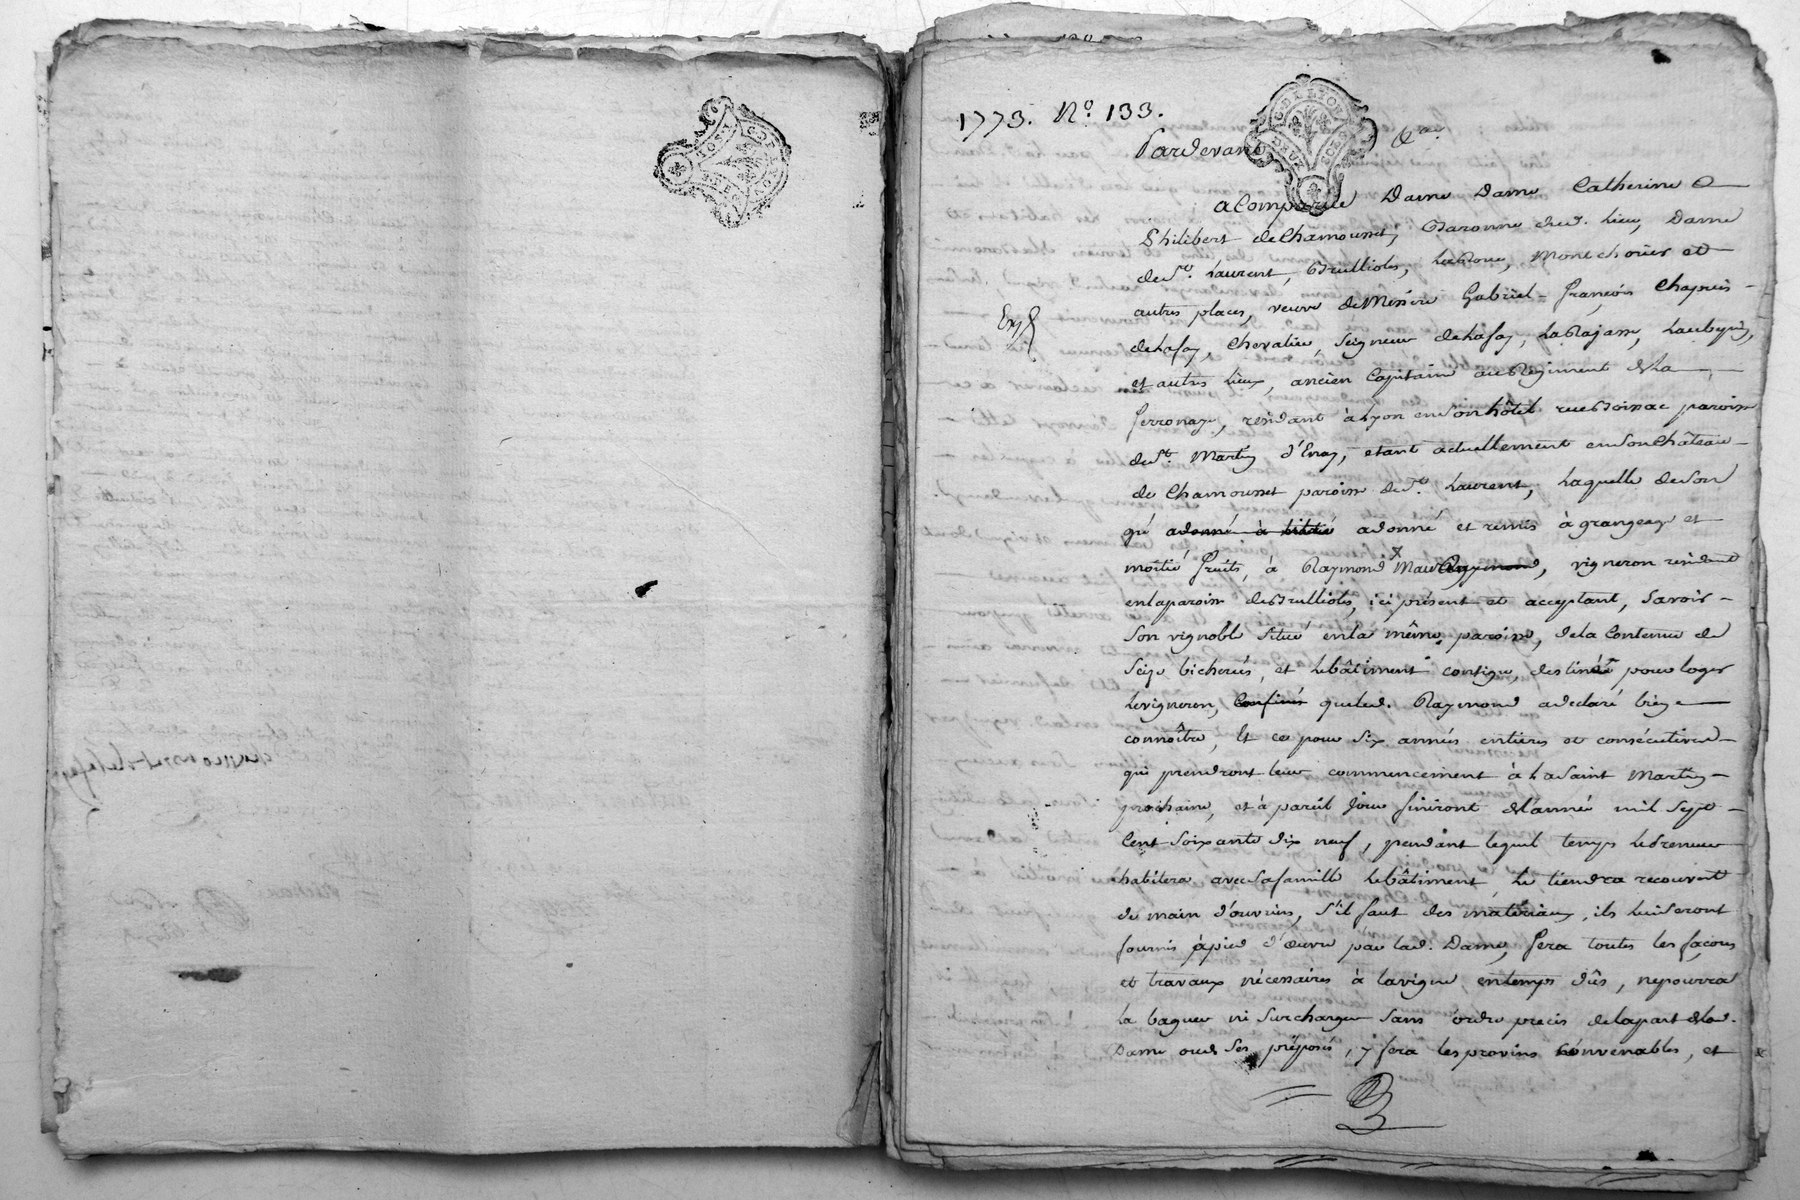 1773. N.º 133.
Pardevant &.ca
a Comparue Dame Dame Catherine
Philibert de Chamousset, Baronne dud. Lieu, Dame
de S.t Laurent, Brullioles, La Roue, Montchorier et
autres places, veuve de Messire Gabriel-François Chapuis-
de Lafay, Chevalier, Seigneur de Lafay, La Rajasse, Laubepin,
Exp
et autres Lieux, ancien Capitaine au Régiment de La
ferronaye, résidant à Lyon en son hôtel rue Boissac paroisse
de S.t Martin d'Enay, étant actuellement en son Château
de Chamousset paroisse de S.t Laurent, Laquelle de son
gré a donné à a donné et remis à grangeage et
moitié fruits, à Raymond Maur Raymond, vigneron résidant
en la paroisse de Brullioles, ici présent et acceptant, savoir-
son vignoble situé en la même paroisse, de la Contenue de
Seize bicherées, et le bâtiment contigu, destiné pour loger
le vigneron, Confinés que led. Raymond a declaré bien
connoître, Et ce pour six années entieres et consécutives
qui prendront leur commencement à la Saint Martin
prochaine, et à pareil jour finiront de l'année mil sept-
Cent soixante dix neuf, pendant lequel temps le preneur
habitera avec sa famille le bâtiment, le tiendra recouvert
de main d'ouvriers, s'il faut des matériaux, ils lui seront
fournis à pied d'œuvre par lad. Dame, fera toutes les façons
et travaux nécessaires à la vigne en temps dûs, ne pourra
la baguer ni surcharger sans ordre precis de la part de lad.
Dame ou de ses préposés, y fera les provins convenables, et